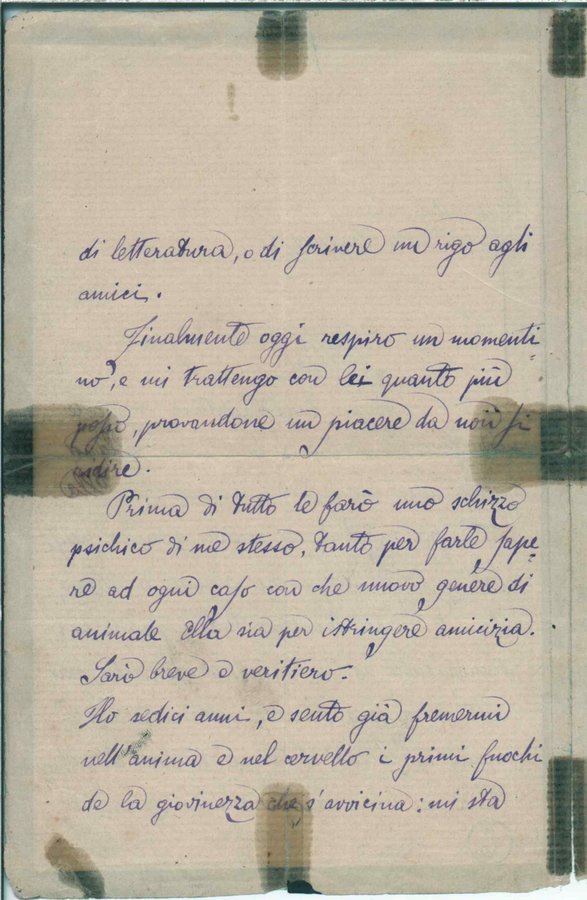 di letteratura, o di scrivere un rigo agli
amici.
Finalmente oggi respiro un momenti=
no, e mi trattengo con lei quanto più
posso, provandone un piacere da non si
dire.
Prima di tutto le farò uno schizzo
psichico di me stesso, tanto per farle sape=
re ad ogni caso con che nuovo genere di
animale Ella sia per istringere amicizia.
Sarò breve e veritiero.
Ho sedici anni, e sento già fremermi
nell'anima e nel cervello i primi fuochi
de la giovinezza che s'avvicina: mi sta